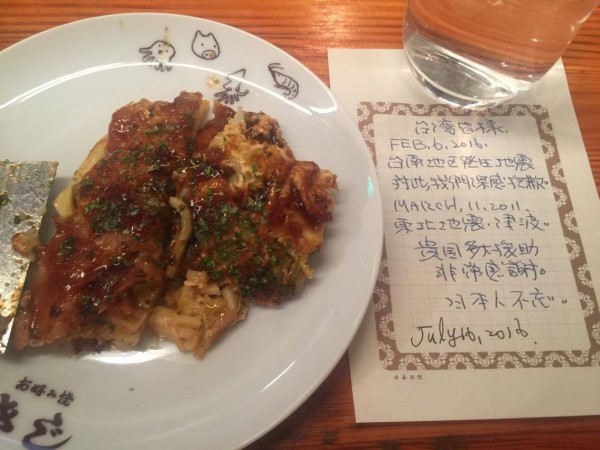 台湾皆様.
FEB.6.2016.
台南地区発生地震
対此我們深感抱歉.
MARCH.11.2011.
東北地震・津波.
貴国多大援助
非常感謝.
日本人不忘.
July 16, 2016.
お好み焼